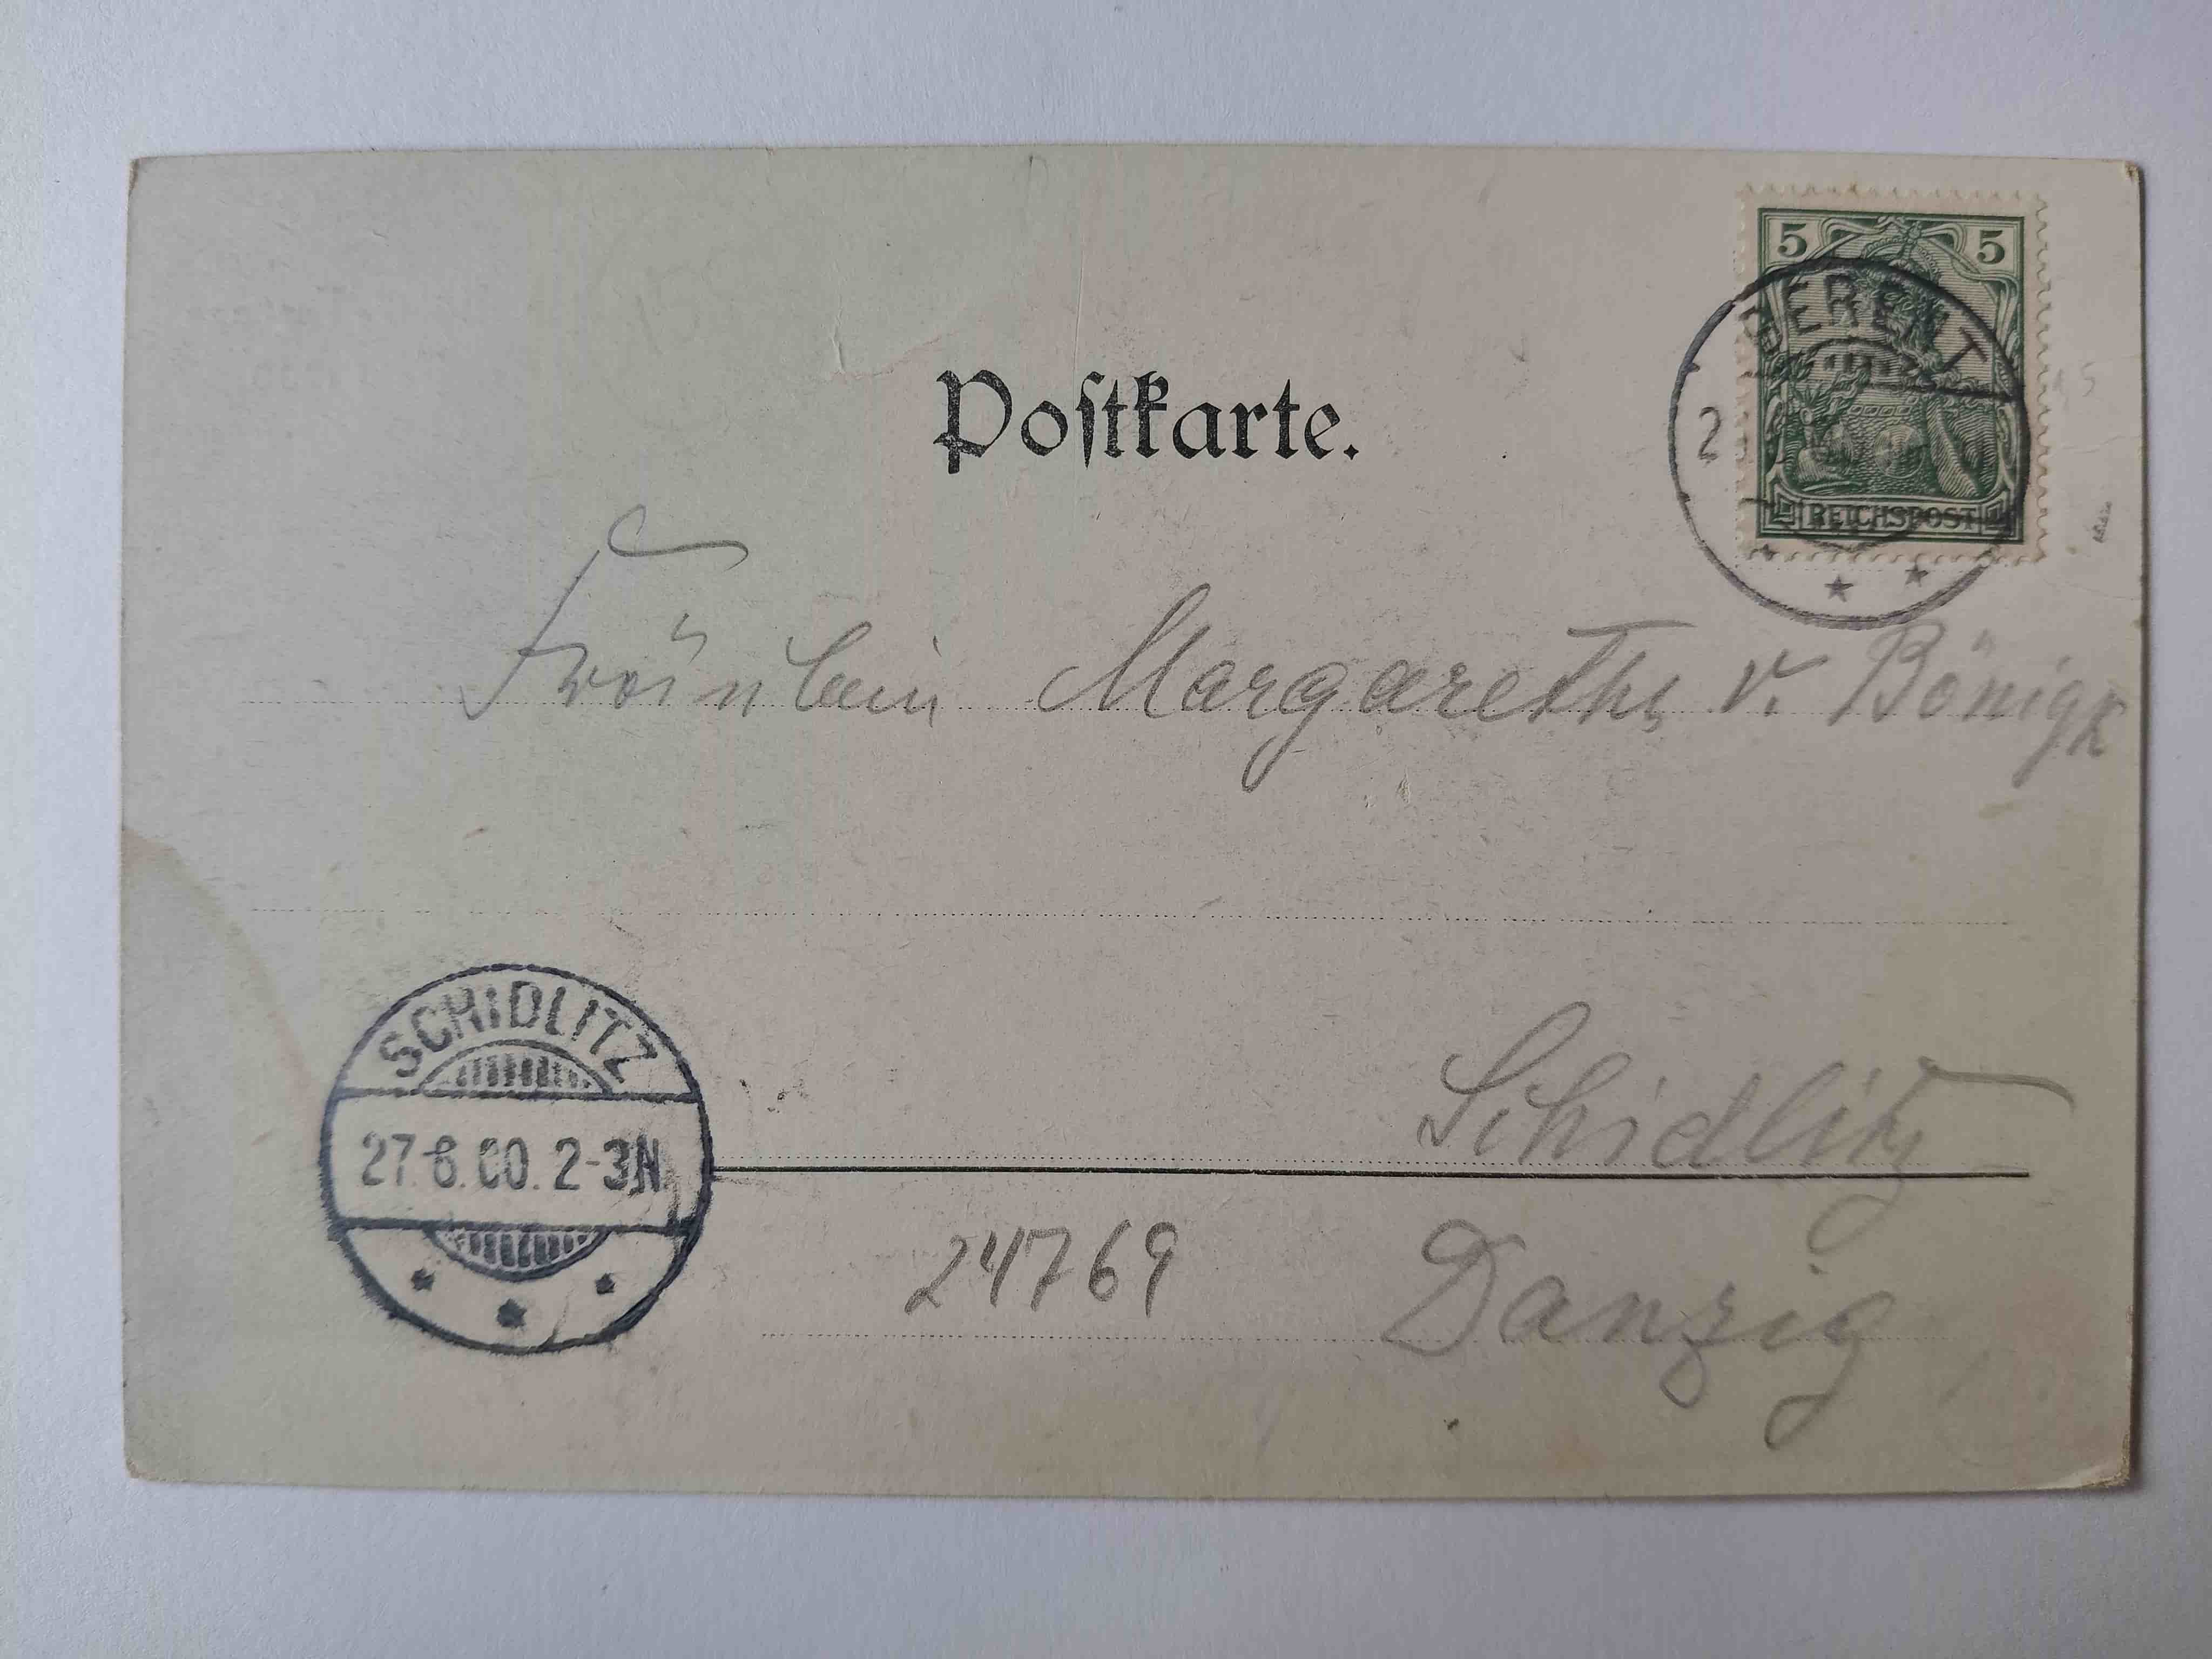 5 5
BERENT
2
REICHSPOST
Postkarte.
Fräulein Margarethe v. Bönigk
Schidlitz
Danzig
SCHIDLITZ
27.6.00. 2-3N
24769